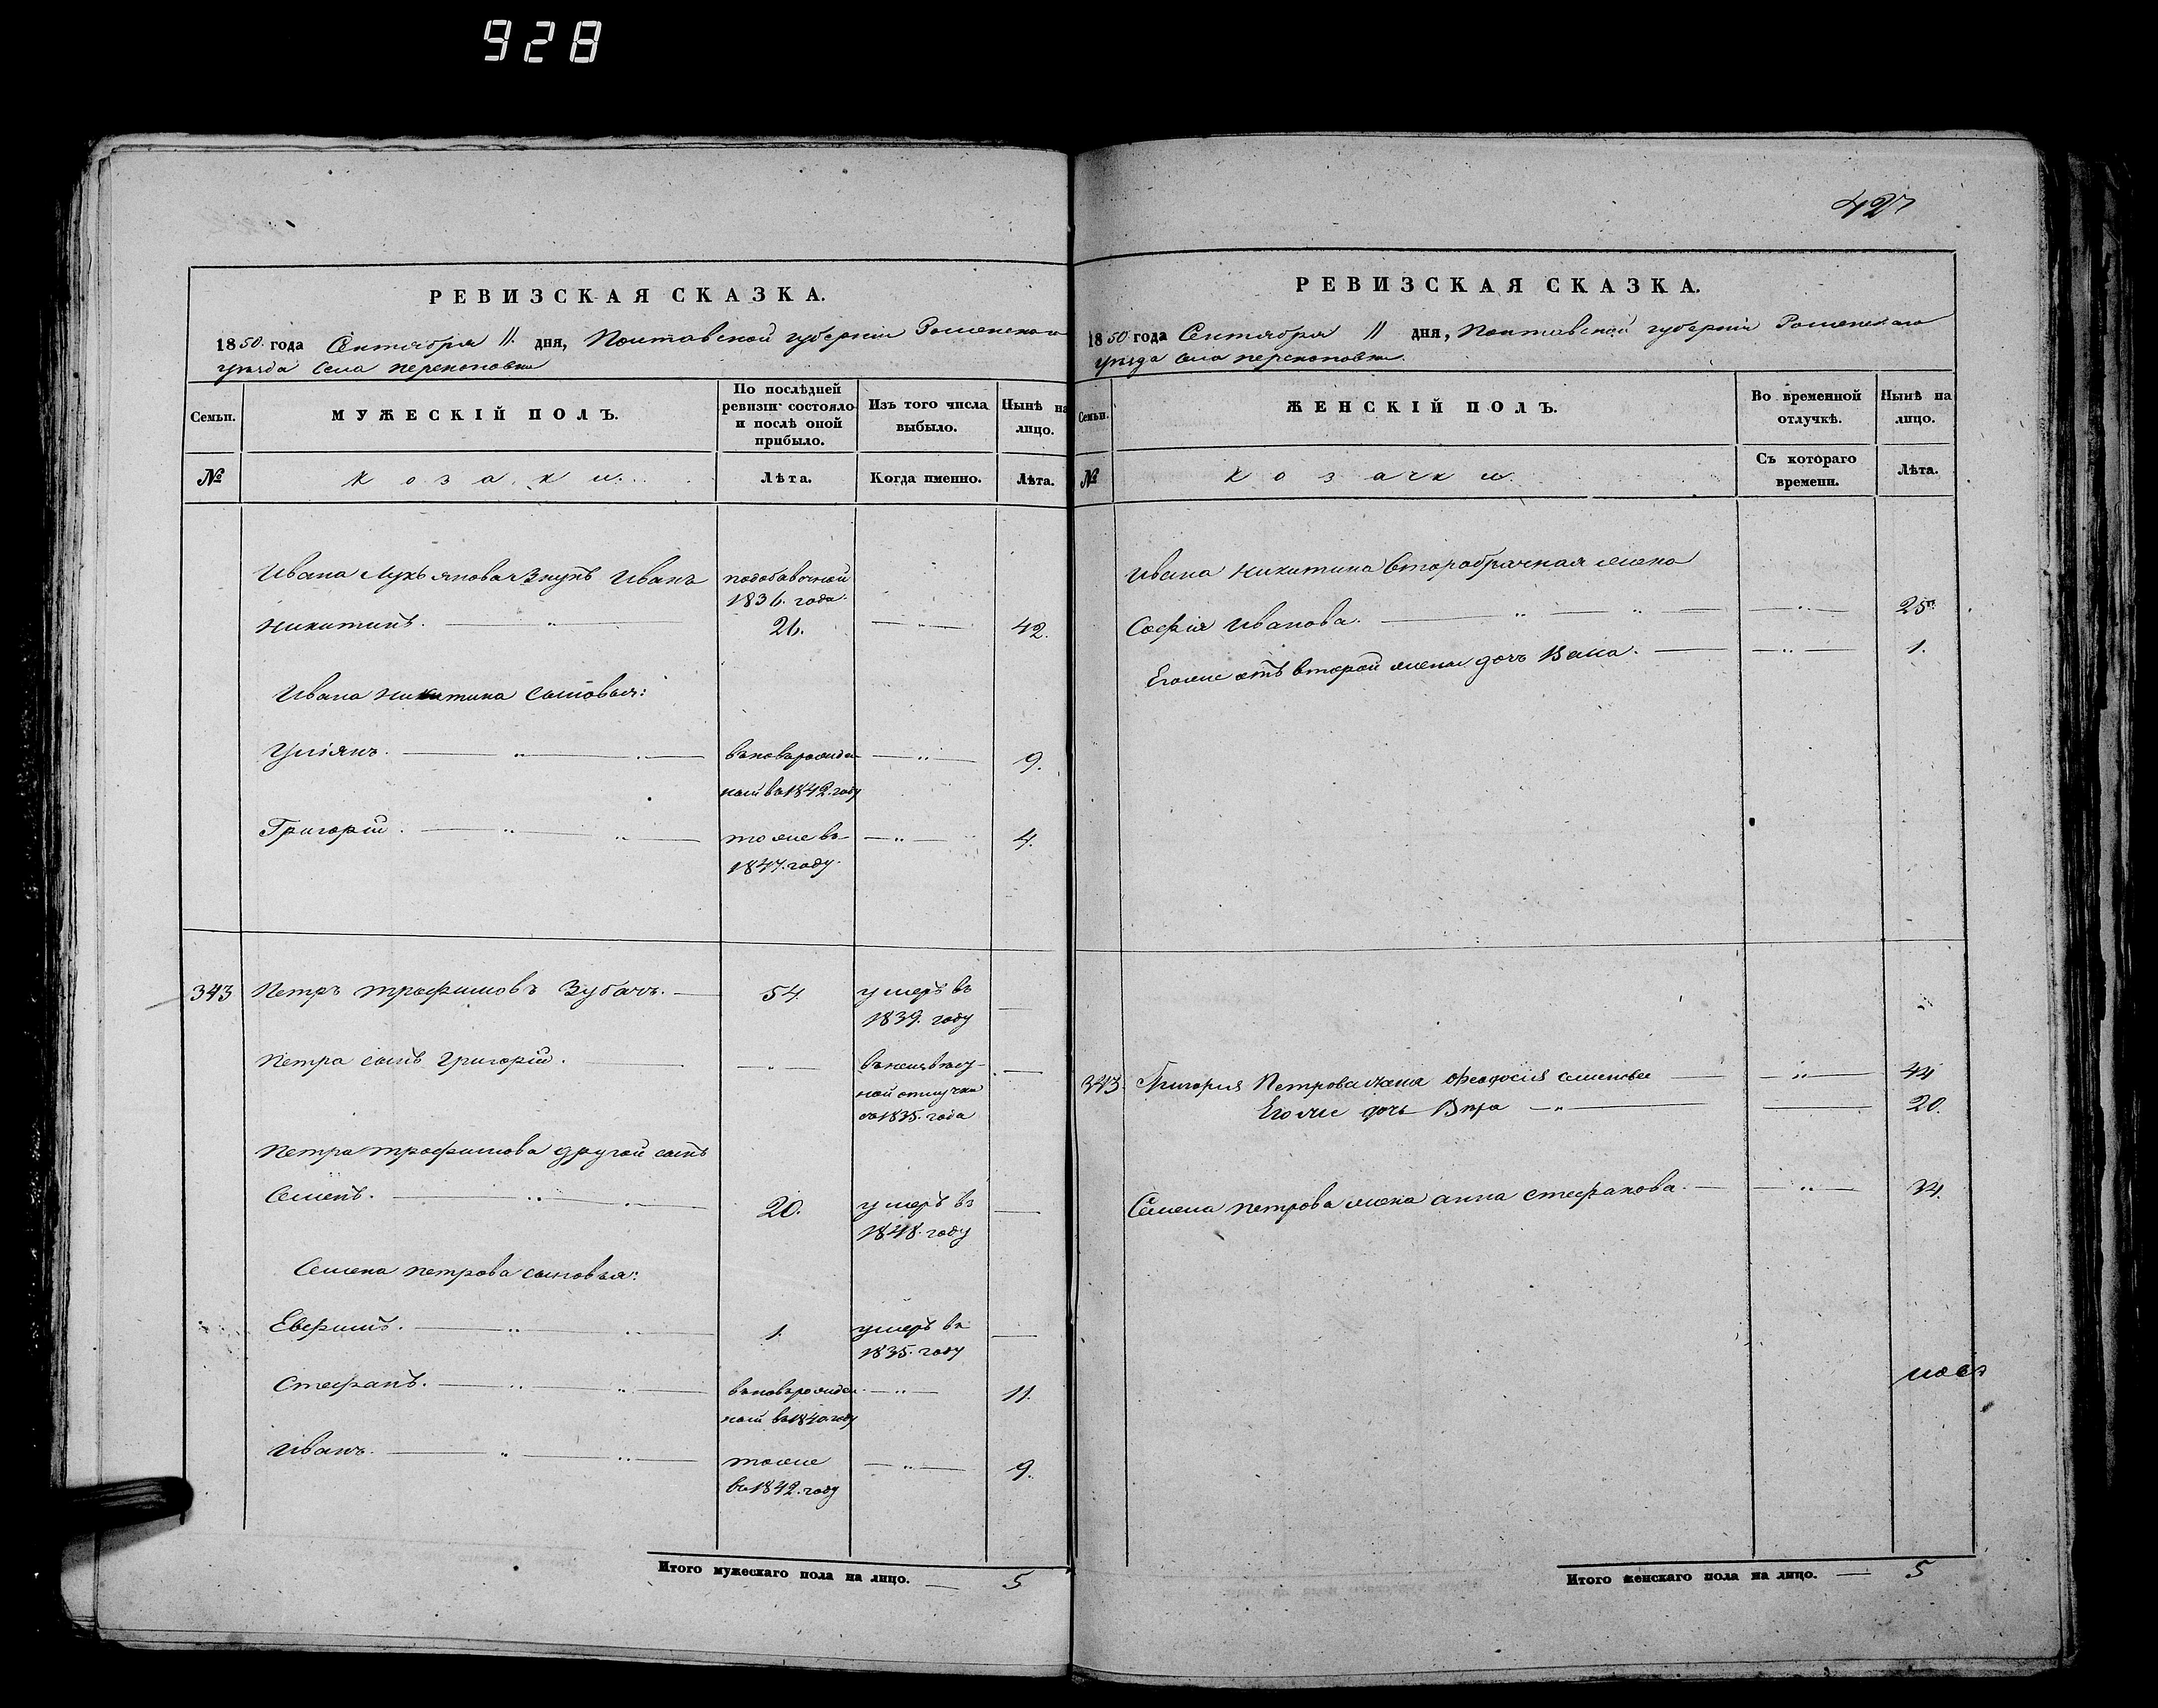 928
РЕВИЗСКАЯ СКАЗКА.
1850 года Сентября 11 дня, Полтавской губерніи Роменского
уѣзда села Перекоповки
Семьи.
МУЖЕСКІЙ ПОЛЪ.
По послѣдней
ревизіи состояло
и послѣ оной
прибыло.
Изъ того числа
выбыло.
Нынѣ на
лицо.
№
козаки.
Лѣта.
Когда именно.
Лѣта.
Ивана Лукьянова внукъ Иванъ
подобавочной
1836. года.
Никитинъ.
26.
42.
Ивана Никитина сыновья:
Улiянъ.
вновьрожден
ной въ 1842. году
9.
Григорій.
тоже въ
1847. году.
4.
343
Петръ Трофимовъ Зубачъ.
54.
умеръ въ
1839. году
Петра сынъ Григорій.
ной отлучки
съ 1835. года
Петра Трофимова другой сынъ
Семенъ.
20.
умеръ въ
1848. году
Семена Петрова сыновья:
Евфимъ.
1.
умеръ въ
1835. году
Стефанъ.
вновьрожден
ной въ 1840 году
11.
Иванъ.
тоже
въ 1842. году
9.
Итого мужескаго пола на лицо.
5
427
РЕВИЗСКАЯ СКАЗКА.
1850 года Сентября 11 дня, Полтавской губерніи Роменского
уѣзда села Перекоповки.
Семьи.
ЖЕНСКІЙ ПОЛЪ.
Во временной
отлучкѣ.
Нынѣ на
лицо.
№
козачки.
Съ котораго
времени.
Лѣта.
Ивана Никитина второбрачная жена
Софія Иванова.
25
Егоже отъ второй жены дочь
1.
343.
Григорія Петрова жена Феодосія Семенова
44
Егоже дочь Вѣра
20.
Семена Петрова жена Анна Стефанова.
34.
Итого женскаго пола на лицо.
5